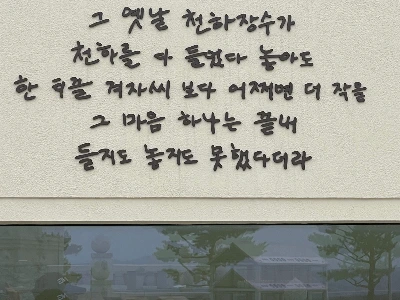 그 옛날 천하장수가
천하를 다 들었다 놓아도
한 티끌 겨자씨 보다 어쩌면 더 작을
그 마음 하나는 끝내
들지도 놓지도 못했다더라